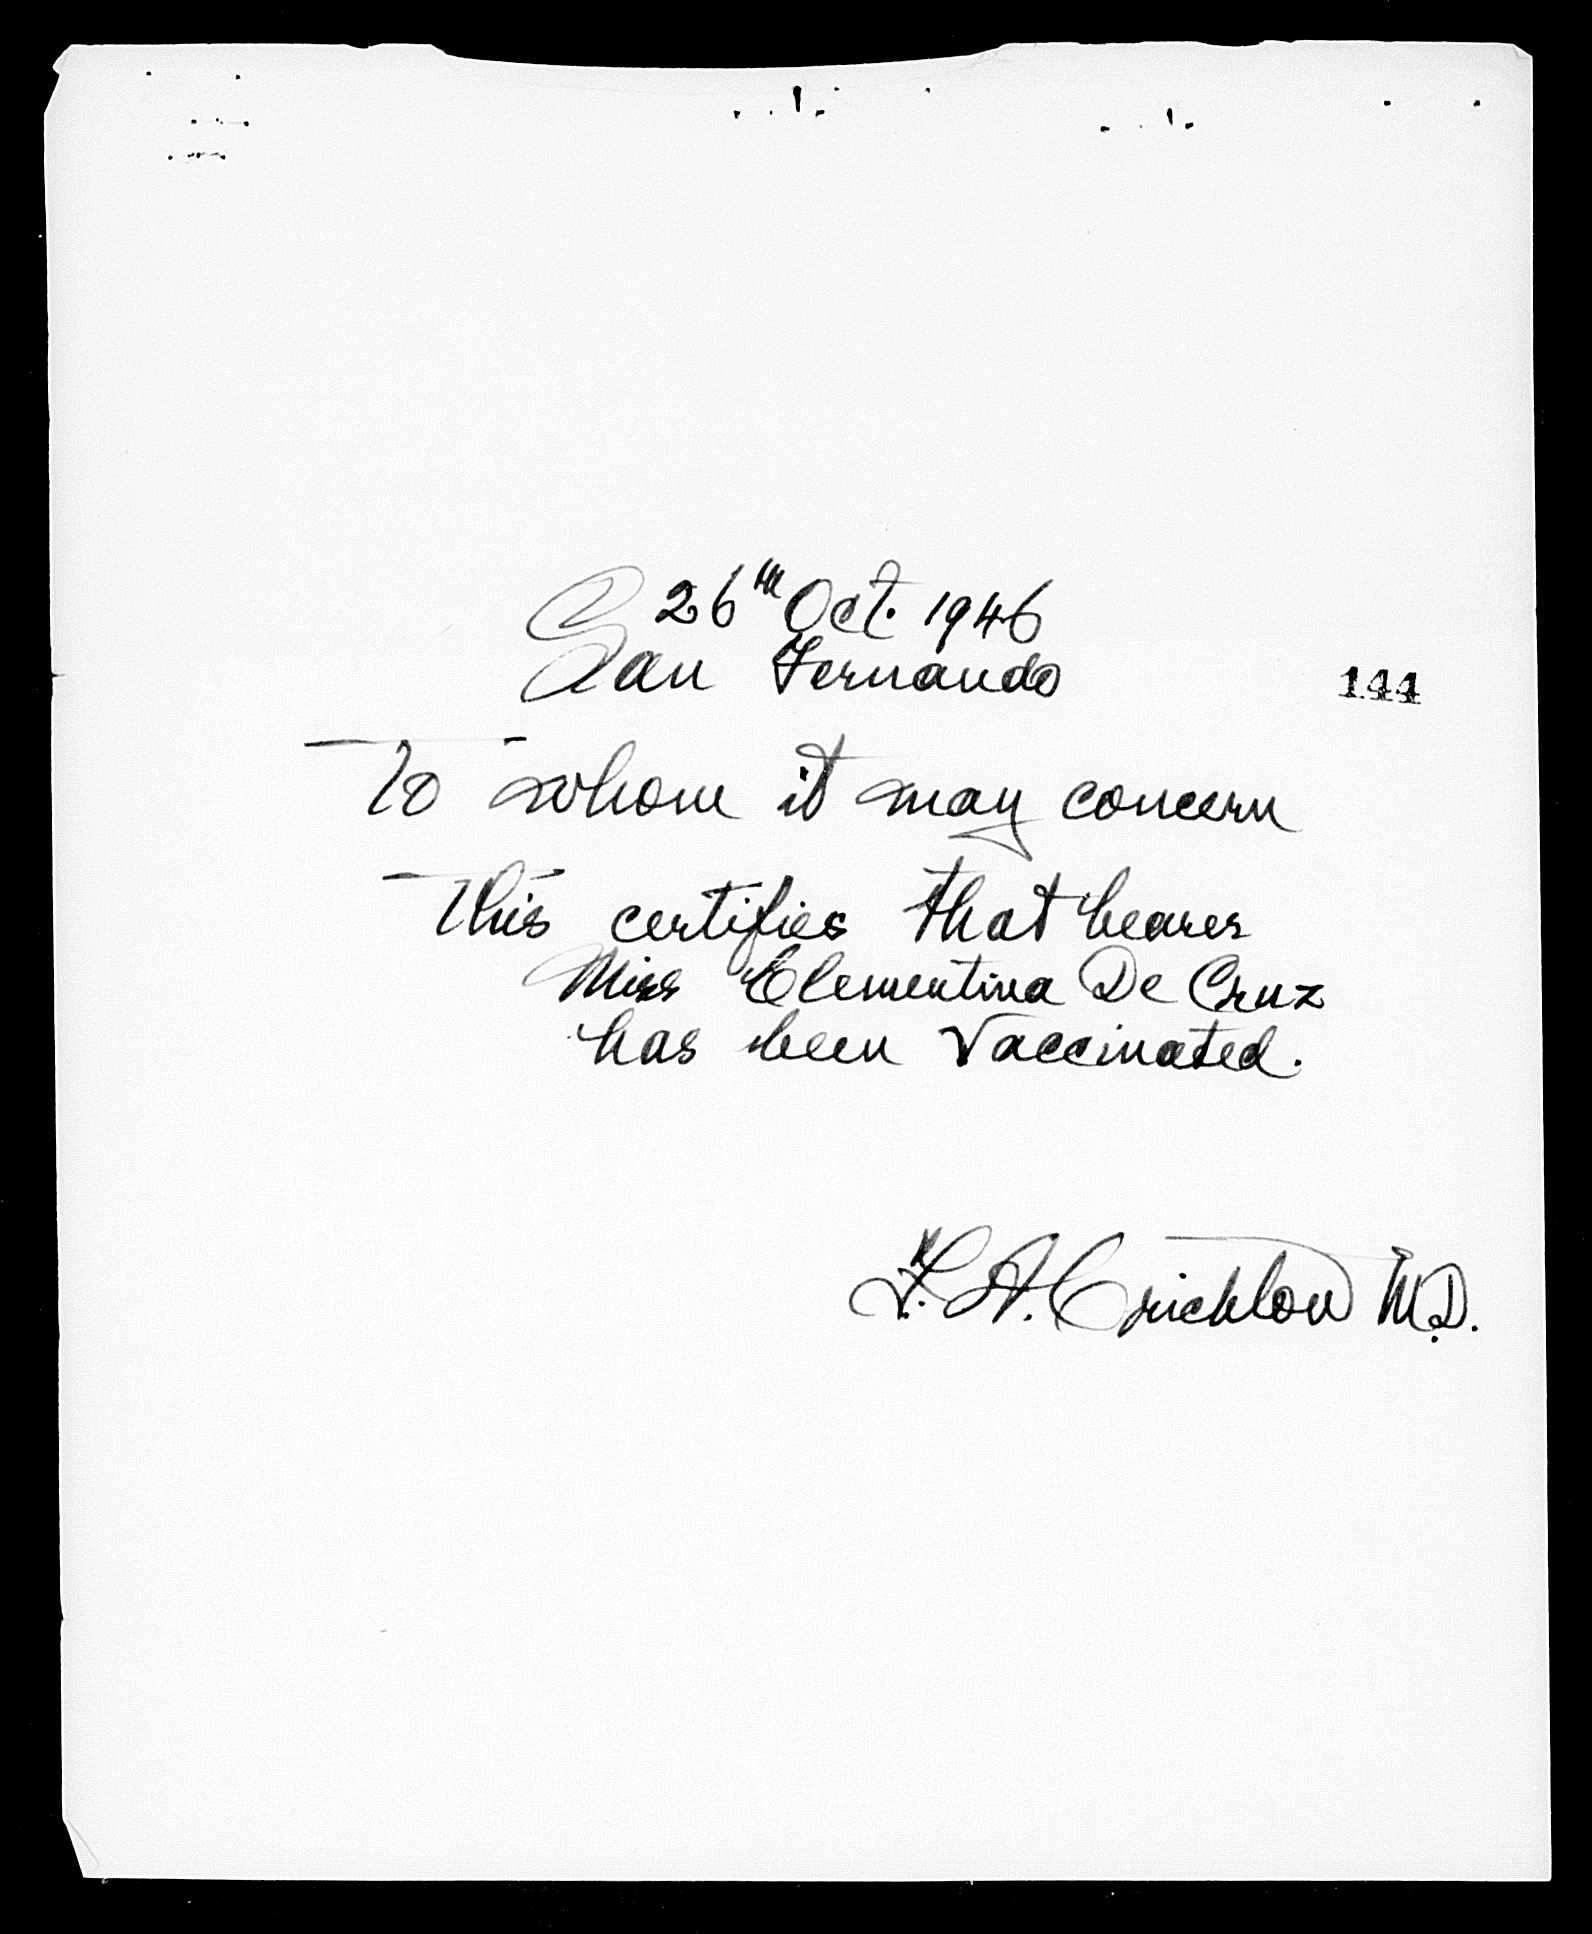 26th Oct. 1946
San Fernando
144
To whom it may concern
This certifies that bearer
Miss Clementina De Cruz
has been Vaccinated.
F. A. Crichlow M.D.